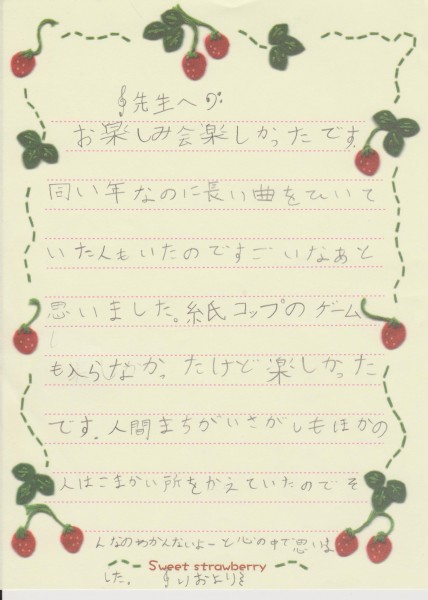 先生へ
お楽しみ会楽しかったです。
同い年なのに長い曲をひいて
いた人もいたのですごいなあと
思いました。紙コップのゲーム
も入らなかったけど楽しかった
です。人間まちがいさがしもほかの
人はこまかい所をかえていたのでそ
んなのわかんないよーと心の中で思いま
Sweet strawberry
した。 りおより